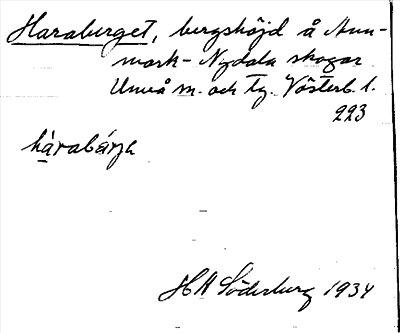 Haraberget, bergshöjd å Ann-
mark- Nydala skogar
Umeå m. och tg. Västerb. l.
223
hàrabárja
HA Söderberg 1934